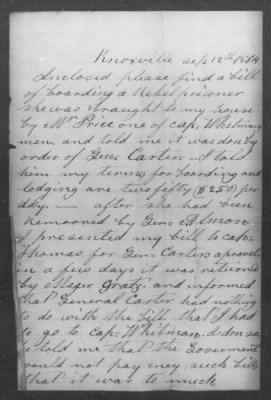 Knoxville Sep 12th 1864
Inclosed please find a bill
of boarding a Rebel prisoner
she was braught to my house
by Mr Price one of cap. Whitmans
men, and told me it was don by
order of Gen. Carter - I told
him my terms for boarding and
lodging are two fifty ($ 2.50) per
day. - after she had been
remooved by Gen.
I presented my bill to cap.
Thomas for Gen. Carters aproval
in a few days it was returned
by Mager Gratz. and informed
that General Carter had nothing
to do with the Bill that I had
to go to Cap. Whitman. I don so
e told me that the Goverment
would not pay eney such bill
that it was to much